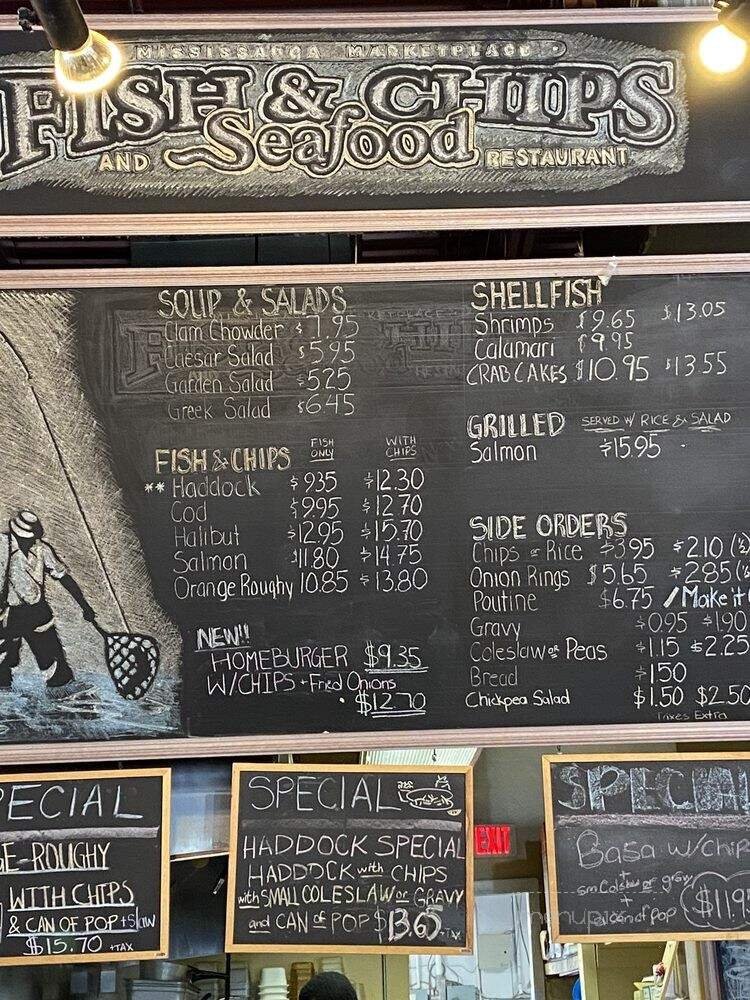 MISSISSAUGA MARKETPLACE
FISH & CHIPS
AND Seafood RESTAURANT
SOUP & SALADS
Clam Chowder $7.95
Caesar Salad $5.95
Garden Salad $5.25
Greek Salad $6.45
FISH & CHIPS FISH ONLY WITH CHIPS
** Haddock $9.35 $12.30
Cod $9.95 $12.70
Halibut $12.95 $15.70
Salmon $11.80 $14.75
Orange Roughy 10.85 $13.80
NEW!!
HOMEBURGER $9.35
W/CHIPS + Fried Onions
$12.70
SHELLFISH
Shrimps $9.65 $13.05
Calamari $9.95
CRAB CAKES $10.95 $13.55
GRILLED SERVED W/ RICE & SALAD
Salmon $15.95
SIDE ORDERS
Chips or Rice $3.95 $2.10 (½)
Onion Rings $5.65 $2.85 (½
Poutine $6.75 / Make it
Gravy $0.95 $1.90
Coleslaw or Peas $1.15 $2.25
Bread $1.50
Chickpea Salad $1.50 $2.50
Taxes Extra
PECIAL
GE-ROUGHY
WITH CHIPS
& CAN OF POP + Slaw
$15.70 +TAX
SPECIAL
HADDOCK SPECIAL
HADDOCK with CHIPS
with SMALL COLESLAW or GRAVY
and CAN of POP $13.65 +TAX
SPECIAL
Basa w/chip
+
sm Coleslaw or gravy
+
a can of pop $11.9
EXIT